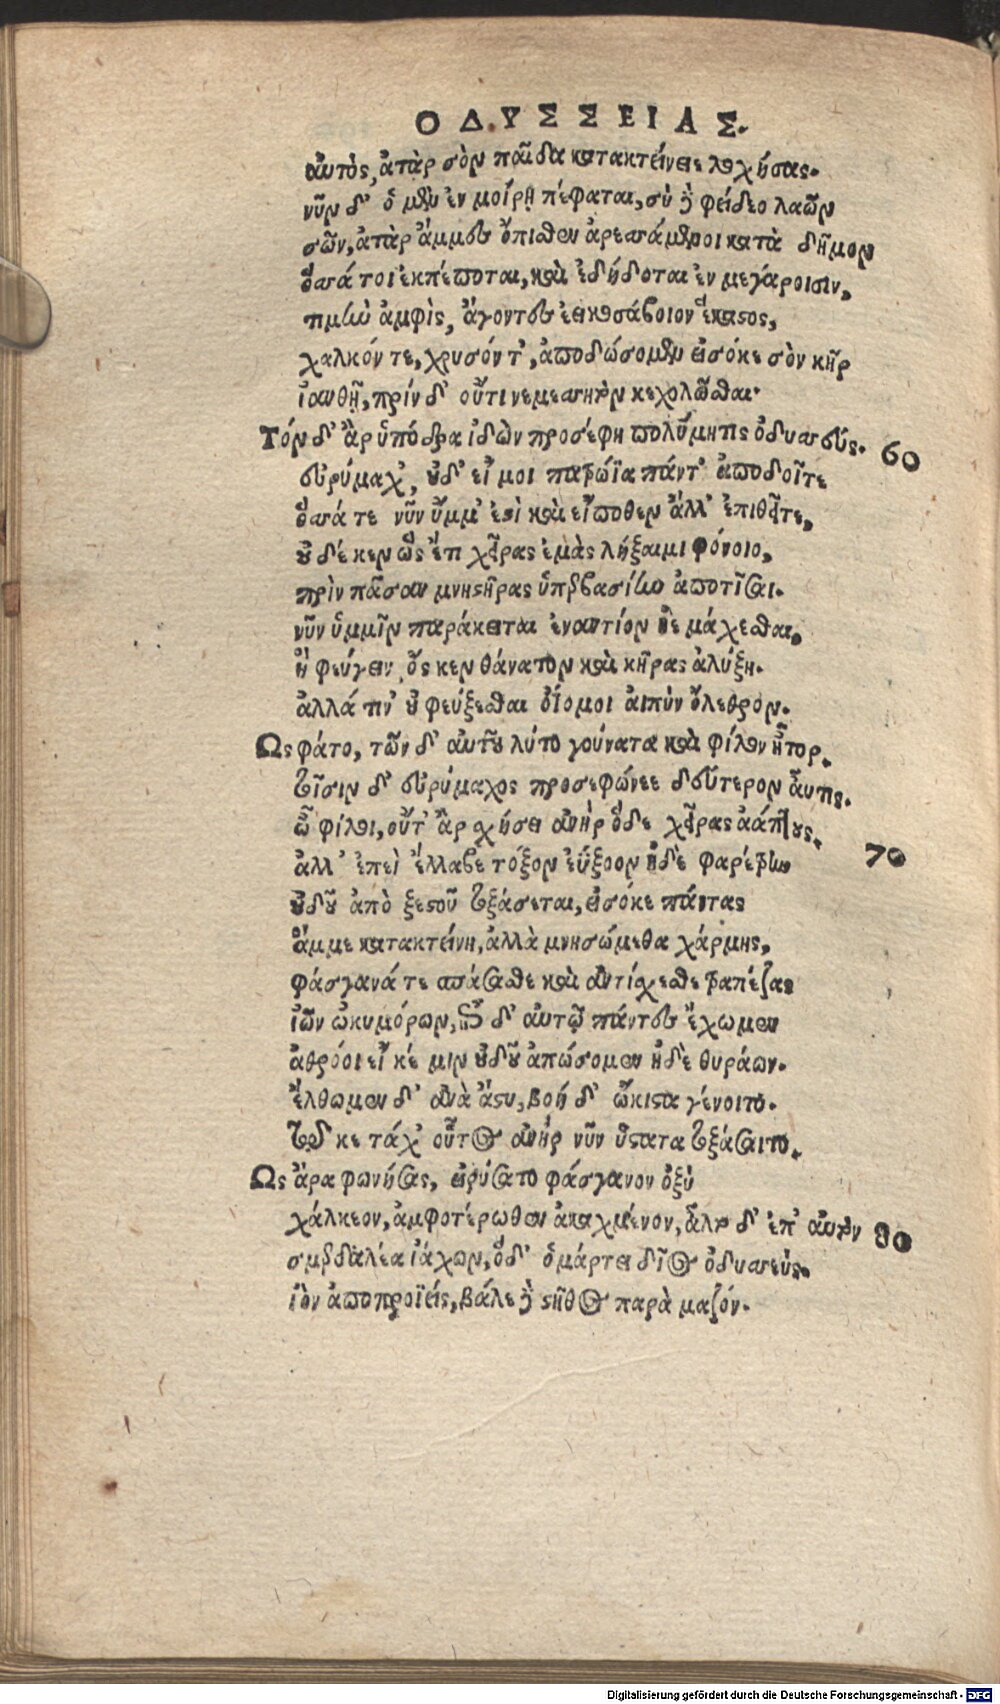 ΟΔΥΣΣΕΙΑΣ.
αὐτὸς, ἀτὰρ σὸν παῖδα κατακτείνειε λοχήσας.
νῦν δ' ὁ μὲν ἐν μοίρῃ πέφαται, σὺ δὲ φείδεο λαῶν
σῶν, ἀτὰρ ἄμμες ὄπιθεν ἀρεσσάμενοι κατὰ δῆμον
ὅσσά τοι ἐκπέποται, καὶ ἐδήδοται ἐν μεγάροισιν,
τιμὴν ἀμφὶς, ἄγοντες ἐεικοσάβοιον ἕκαστος,
χαλκόν τε, χρυσόν τ', ἀποδώσομεν εἰσόκε σὸν κῆρ
ἰανθῇ, πρίν δ' οὔτι νεμεσσητὸν κεχολῶσθαι.
Τόν δ' ἂρ ὑπόδρα ἰδὼν προσέφη πολύμητις ὀδυσσεύς. 60
εὐρύμαχ', οὐδ' εἴ μοι πατρώϊα πάντ' ἀποδοῖτε
ὅσσά τε νῦν ὔμμ' ἐστὶ καὶ εἴποθεν ἄλλ' ἐπιθεῖτε,
οὐδέ κεν ὣς ἔπ χεῖρας ἐμὰς λήξαιμι φόνοιο,
πρὶν πᾶσαν μνηστῆρας ὑπερβασίην ἀποτῖσαι.
νῦν ὑμμῖν παράκειται ἐναντίον ἠὲ μάχεσθαι,
ἢ φεύγειν, ὅς κεν θάνατον καὶ κῆρας ἀλύξῃ.
ἀλλά τιν' οὐ φεύξεσθαι ὀΐομοι αἰπὺν ὄλεθρον.
Ως φάτο, τῶν δ' αὐτοῦ λύτο γούνατα καὶ φίλον ἦτορ.
τοῖσιν δ' εὐρύμαχος προσεφώνεε δεύτερον αὖτις.
ὦ φίλοι, οὔτ' ἂρ σχήσει ἀνὴρ ὅδε χεῖρας ἀάπτους.
ἀλλ' ἐπεὶ ἔλλαβε τόξον ἐΰξοον ἠδὲ φαρέτρην 70
οὐδοῦ ἀπὸ ξεστοῦ τοξάσεται, εἰσόκε πάντας
ἄμμε κατακτείνῃ, ἀλλὰ μνησώμεθα χάρμης,
φάσγανά τε σπάσασθε καὶ ἀντίσχεσθε τραπέζας
ἰῶν ὠκυμόρων, ἐπὶ δ' αὐτῷ πάντες ἔχωμεν
ἀθρόοι εἴ κέ μιν οὐδοῦ ἀπώσομεν ἠδὲ θυράων.
ἔλθωμεν δ' ἀνὰ ἄστυ, βοή δ' ὤκιστα γένοιτο.
τῷ κε τάχ' οὗτος ἀνὴρ νῦν ὕστατα τοξάσαιτο.
Ως ἄρα φωνήσας, εἰρύσατο φάσγανον ὀξὺ
χάλκεον, ἀμφοτέρωθεν ἀκαχμένον, ἆλτο δ' ἐπ' αὐτὸν 80
σμερδαλέα ἰάχων, ὅδ' ὁμάρτει δῖος ὀδυσσεὺς.
ἰὸν ἀποπροϊείς, βάλε δὲ στῆθος παρὰ μαζόν.
Digitalisierung gefördert durch die Deutsche Forschungsgemeinschaft - DFG